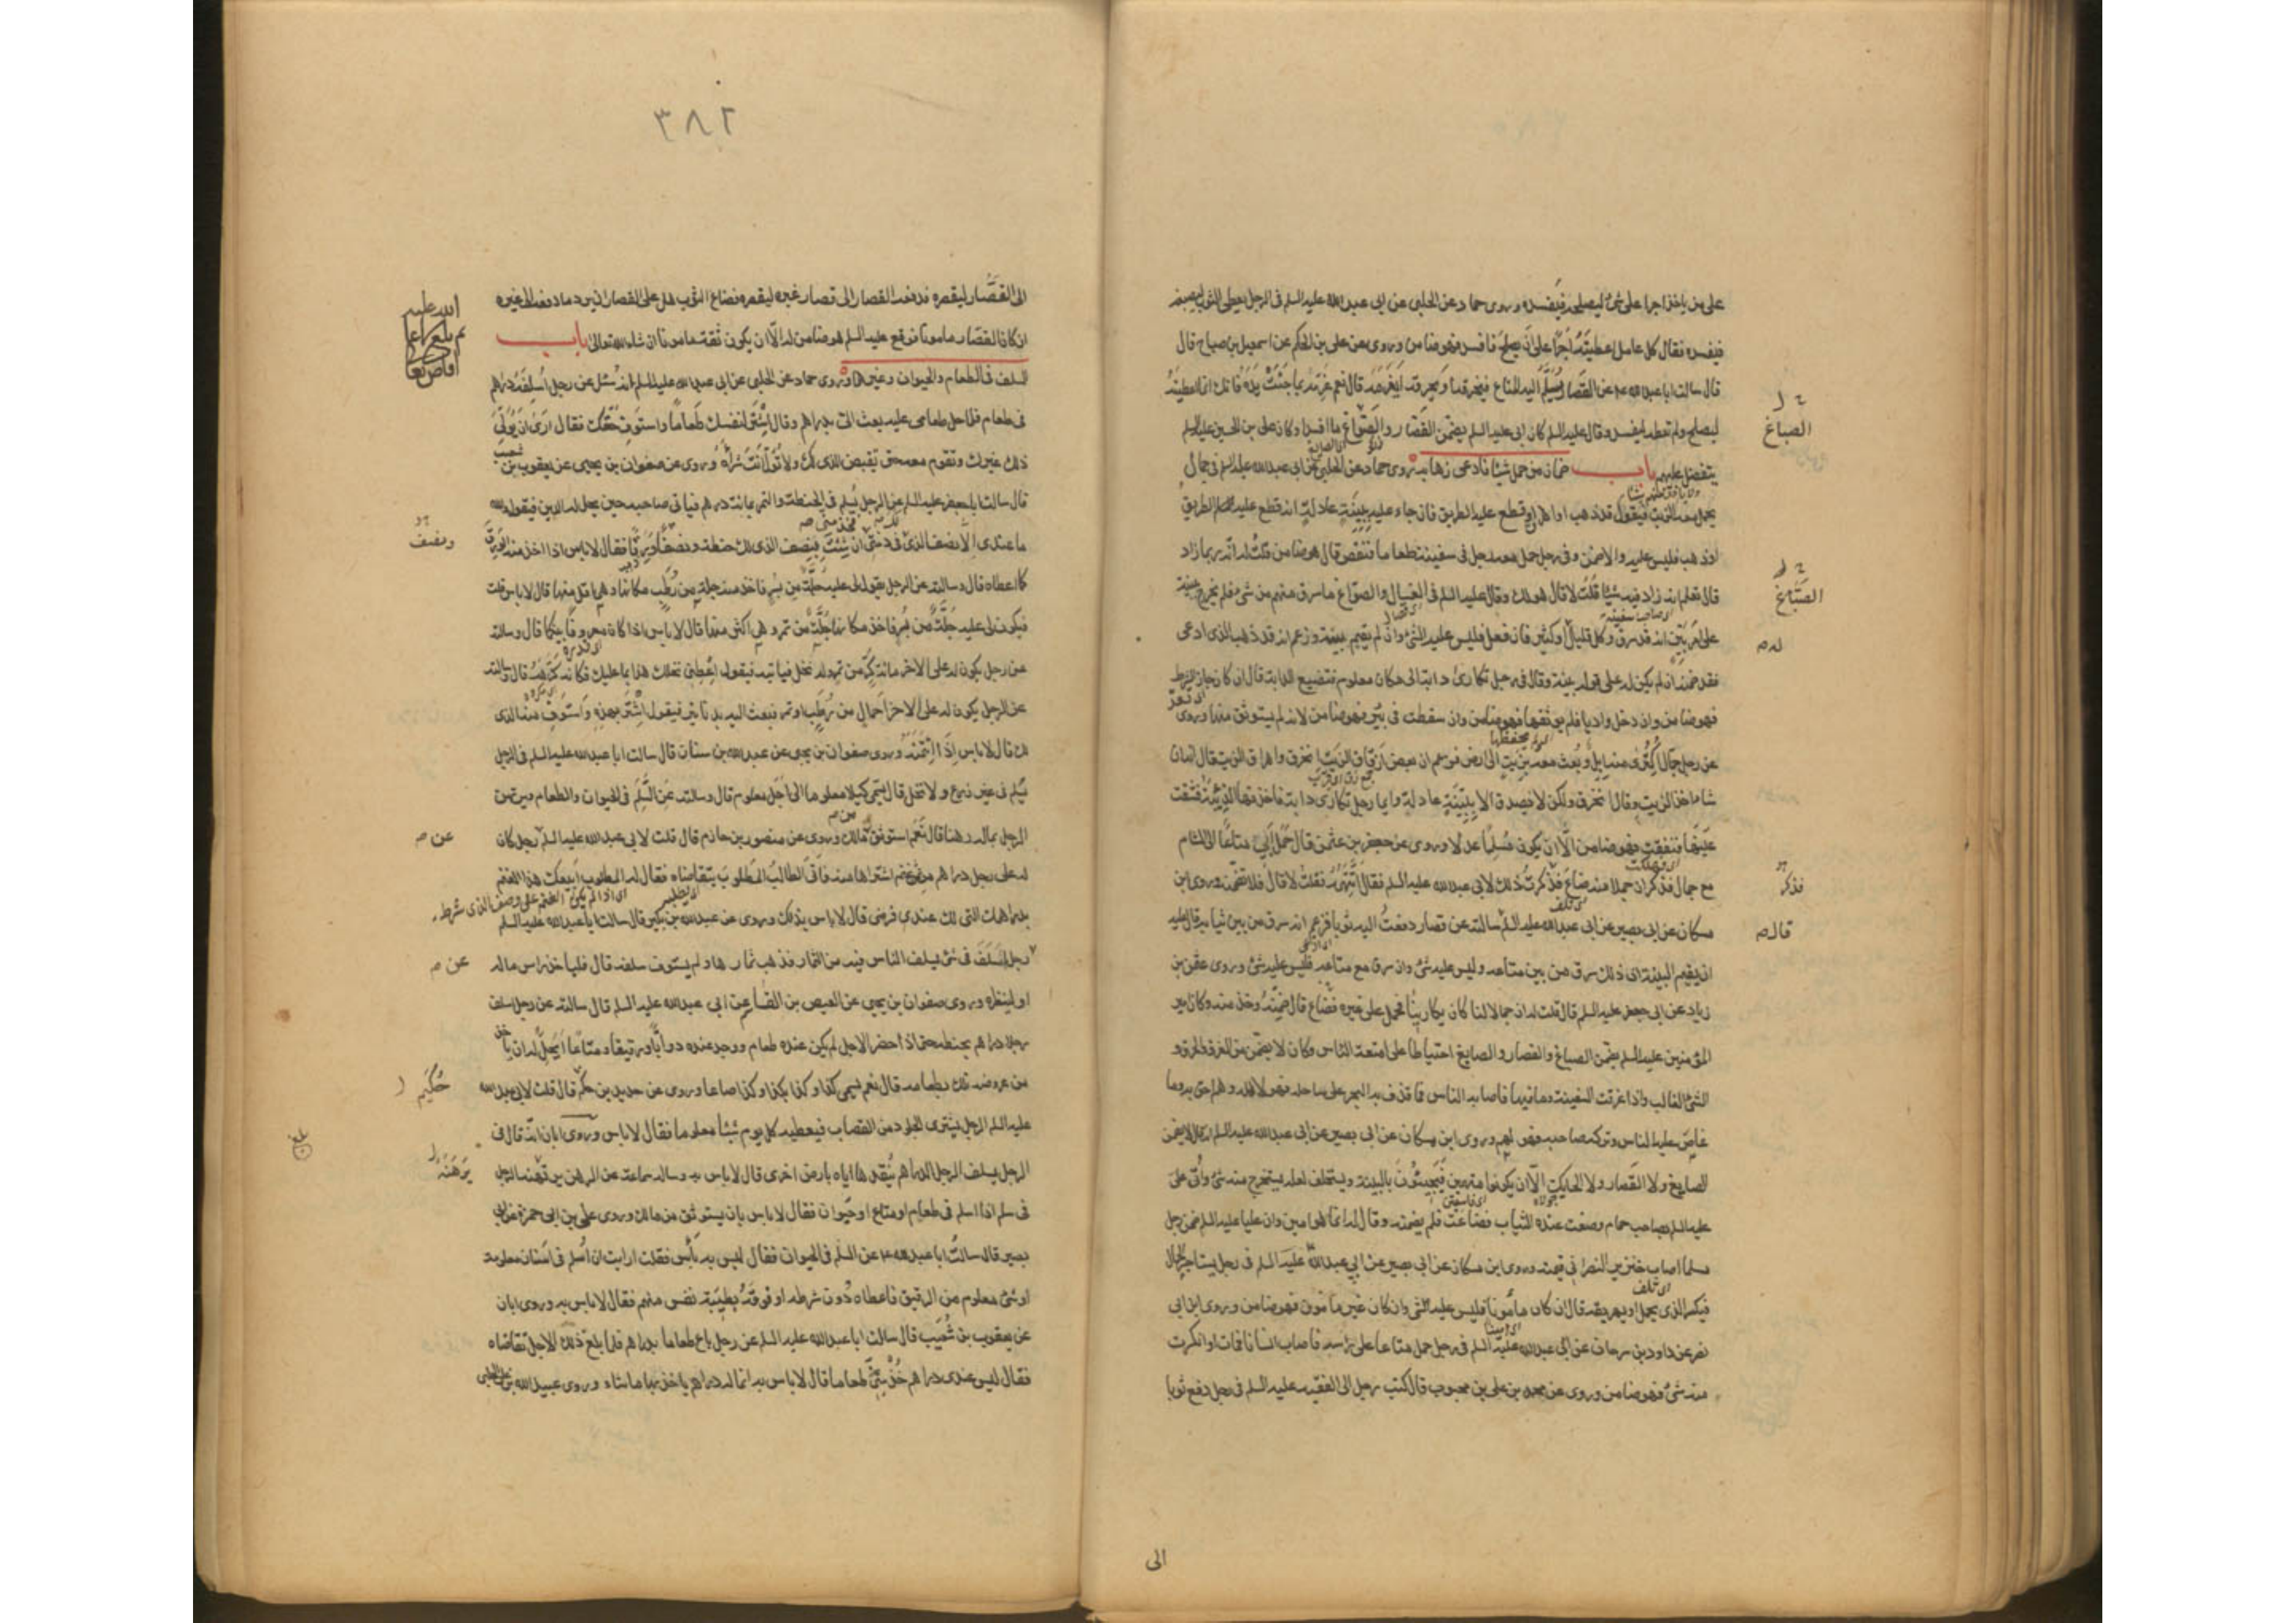 على من ياخذ اجرا على شئ ليصلحه فيفسده وروى حماد عن الحلبى عن ابى عبد الله عليه السلم فى الرجل يعطى الثوب ليصبغه
فيفسده فقال كل عامل اعطيته اجرا على ان يصلح فافسد فهو ضامن وروى عن على بن الحكم عن اسمعيل بن صباح قال
قال سالت ابا عبد الله ع عن القصار يسلم اليه المتاع فيخرقه او يحرقه ايغرمه قال نعم غرمه بما جنت يده فانك انما اعطيته
ليصلح ولم تعطه ليفسد وقال عليه السلم كان ابى عليه السلم يضمن القصار والصواغ ما افسدا وكان على بن الحسين عليه السلم
الصباغ
يتفضل عليهم باب ضمان من حمل شيئا فادعى ذهابه روى حماد عن الحلبى عن ابى عبد الله عليه السلم فى جمال
يحمل معه الزيت فيقول قد ذهب او اهرق او قطع عليه الطريق فان جاء عليه ببينة عادلة انه قطع عليه الطريق
او ذهب فليس عليه والا ضمن وفى رجل حمل معه رجل فى سفينته طعاما فنقص قال هو ضامن قلت له انه ربما زاد
قال تعلم انه زاد فيه شيئا قلت لا قال هو لك وقال عليه السلم فى الغسال والصواغ ما سرق منهم من شئ فلم يخرج ببينة
الصباغ
على امر بين انه قد سرق وكل قليل او كثير فان فعل فليس عليه شئ وان لم يقم بينة وزعم انه قد ذهب الذى ادعى
له
فقد ضمنه ان لم يكن له على قوله بينة وقال فى رجل تكارى دابة الى مكان معلوم فتضيع الدابة قال ان كان جاز الشرط
فهو ضامن وان دخل واديا فلم يوثقها فهو ضامن وان سقطت فى بئر فهو ضامن لانه لم يستوثق منها وروى
عن رجل جمال اكترى منه ابل وبعث معه بزيت الى ارض فزعم ان بعض ازقاق الزيت انخرق واهراق الزيت فقال ان
شاء اخذ الزيت وقال انخرق ولكن لا يصدق الا ببينة عادلة وايما رجل تكارى دابة فاخذتها الذئبة فشقت
عينها فنفقت فهو ضامن الا ان يكون مسلما عدلا وروى عن جعفر بن عثمن قال حمل ابى متاعا الى الشام
مع جمال فذكر ان حملا منه ضاع فذكرت ذلك لابى عبد الله عليه السلم فقال اتتهمه فقلت لا قال فلا تضمنه وروى ابن
فذكر
مسكان عن ابى بصير عن ابى عبد الله عليه السلم سالته عن قصار دفعت اليه ثوبا فزعم انه سرق من بين ثيابه قال عليه
قال
ان يقيم البينة ان ذلك سرق من بين متاعه وليس عليه شئ وان سرق مع متاعه فليس عليه شئ وروى عثمن بن
زياد عن ابى جعفر عليه السلم قال قلت له ان جمالا لنا كان يكارينا فحمل على غيره فضاع قال ضمنه وخذ منه وكان امير
المؤمنين عليه السلم يضمن الصباغ والقصار والصايغ احتياطا على امتعة الناس وكان لا يضمن من الغرق والحرق و
الشئ الغالب واذا غرقت السفينة وما فيها فاصابه الناس فما قذف به البحر على ساحله فهو لاهله وهم احق به وما
غاص عليه الناس وتركه صاحبه فهو لهم وروى ابن مسكان عن ابى بصير عن ابى عبد الله عليه السلم انه قال لا يضمن
الصايغ ولا القصار ولا الحايك الا ان يكونوا متهمين فيجيئون بالبينة ويستحلف لعله يستخرج منه شئ واتى على
عليه السلم بصاحب حمام وضعت عنده الثياب فضاعت فلم يضمنه وقال له انما هو امين وان عليا عليه السلم ضمن رجل
مسلما اصاب خنزير النصرانى قيمته وروى ابن مسكان عن ابى بصير عن ابى عبد الله عليه السلم فى رجل يستاجر الجمال
فيكسر الذى يحمل او يهريقه قال ان كان مأمونا فليس عليه شئ وان كان غير مأمون فهو ضامن وروى ابن ابى
نصر عن داود بن سرحان عن ابى عبد الله عليه السلم فى رجل حمل متاعا على راسه فاصاب انسانا فمات او انكسرت
منه شئ فهو ضامن وروى عن محمد بن على بن محبوب قال كتب رجل الى الفقيه عليه السلم فى رجل دفع ثوبا
الى
٣٨٢
الى القصار ليقصره فدفعه القصار الى قصار غيره ليقصره فضاع الثوب هل على القصار ان يرد ما دفعه الى غيره
ان كان القصار مامونا فوقع عليه السلم هو ضامن له الا ان يكون ثقة مامونا ان شاء الله تعالى باب
السلف فى الطعام والحيوان وغيرهما روى حماد عن الحلبى عن ابى عبد الله عليه السلم انه سئل عن رجل اسلفته دراهم
فى طعام فلما حل طعامى عليه بعث الى بدراهم وقال اشتر لنفسك طعاما واستوف حقك فقال ارى ان يولى
ذلك غيرك وتقوم معه حتى تقبض الذى لك ولا تولى انت شراه وروى عن صفوان بن يحيى عن يعقوب بن شعيب
قال سالت ابا جعفر عليه السلم عن الرجل يسلم فى الحنطة والتمر بمائة درهم فياتى صاحبه حين يحل له الدين فيقول والله
ما عندى الا نصف الذى لك فخذ منى ان شئت بنصف الذى لك حنطة ونصفا ورقا فقال لا باس اذا اخذ منه الورق
كما اعطاه قال وسالته عن الرجل يقول لى عليه جلة من بسر فاخذ منه جلة من رطب مكانها وهى اقل منها قال لا باس قلت
فيكون لى عليه جلة من بسر فاخذ مكانها جلة من تمر وهى اكثر منها قال لا باس اذا كان معروفا بينكما قال وسالته
عن رجل يكون له على الاخر مائة كر من تمر وله نخل فياتيه فيقول اعطنى نخلك هذا بما عليك فكانه كرهه قال وسالته
عن الرجل يكون له على الاخر احمال من رطب او تمر فيبعث اليه بدنانير فيقول اشتر بهذه واستوف منه الذى
لك قال لا باس اذا ائتمنه وروى صفوان بن يحيى عن عبد الله بن سنان قال سالت ابا عبد الله عليه السلم فى الرجل
يسلم فى غير زرع ولا نخل قال يسمى كيلا معلوما الى اجل معلوم قال وسالته عن السلم فى الحيوان والطعام ويرتهن
الرجل بماله رهنا قال نعم استوثق من مالك وروى عن منصور بن حازم قال قلت لابى عبد الله عليه السلم رجل كان
عن
له على رجل دراهم من ثمن غنم اشتراها منه فاتى الطالب المطلوب يتقاضاه فقال له المطلوب ابيعك هذا الغنم
بدراهمك التى لك عندى فرضى قال لا باس بذلك وروى عن عبد الله بن بكير قال سالت ابا عبد الله عليه السلم
عن
رجل اسلف فى شئ يسلف الناس فيه من الثمار فذهب ثمارها ولم يستوف سلفه قال فلياخذ راس ماله
او لينظره وروى صفوان بن يحيى عن العيص بن القاسم عن ابى عبد الله عليه السلم قال سالته عن رجل اسلف
رجلا دراهم بحنطة حتى اذا حضر الاجل لم يكن عنده طعام ووجد عنده دوابا ورقيقا ومتاعا ايحل له ان ياخذ
من عروضه تلك بطعامه قال نعم يسمى كذا وكذا بكذا وكذا صاعا وروى عن حديد بن حكم قال قلت لابى عبد الله
حكيم
عليه السلم الرجل يشترى الجلود من القصاب فيعطيه كل يوم شيئا معلوما فقال لا باس وروى ابان انه قال فى
الرجل يسلف الرجل الدراهم ينقدها اياه بارض اخرى قال لا باس به وساله سماعة عن الرهن يرتهنه الرجل
يرهنه
فى سلم اذا اسلم فى طعام او متاع او حيوان فقال لا باس بان يستوثق من مالك وروى على بن ابى حمزة عن ابى
بصير قال سالت ابا عبد الله ع عن السلم فى الحيوان فقال ليس به بأس فقلت ارايت ان اسلم فى اسنان معلومة
او شئ معلوم من الرقيق فاعطاه دون شرطه او فوقه بطيبة نفس منهم فقال لا باس به وروى ابان
عن يعقوب بن شعيب قال سالت ابا عبد الله عليه السلم عن رجل باع طعاما بدراهم فلما بلغ ذلك الاجل تقاضاه
فقال ليس عندى دراهم خذ منى طعاما قال لا باس به انما له دراهم ياخذ بها ما شاء وروى عبيد الله بن على الحلبى